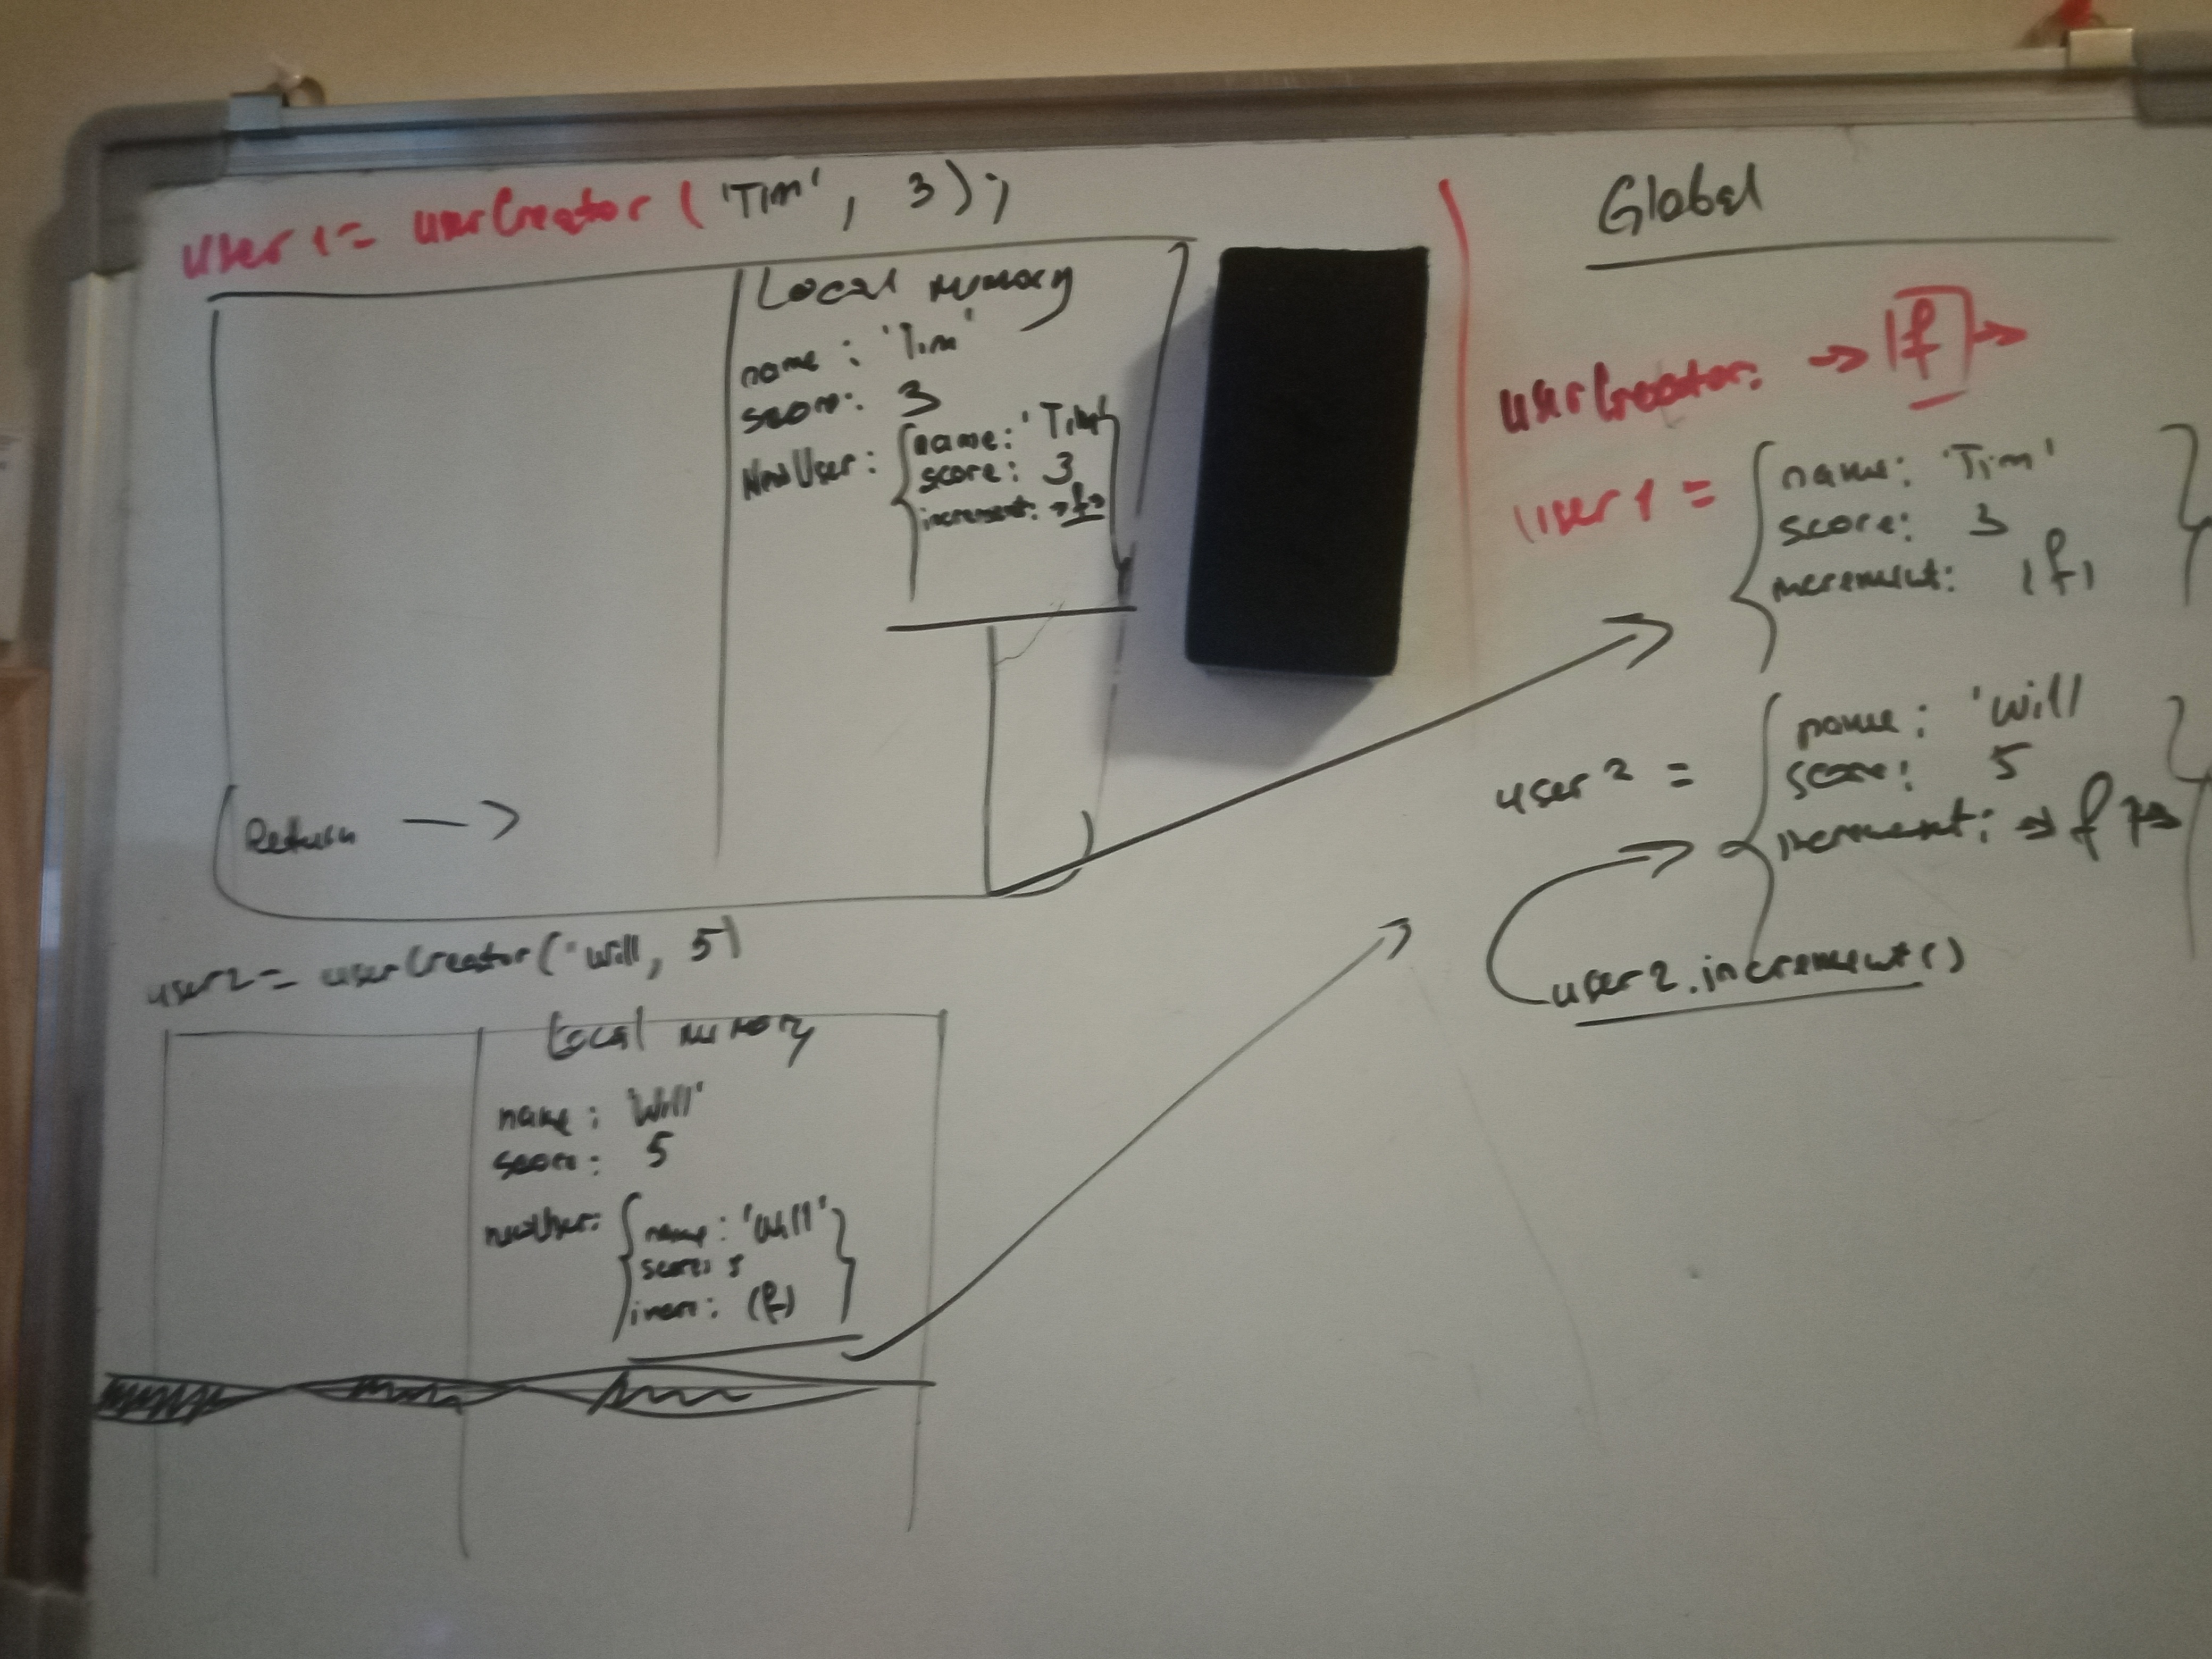 user1= userCreator('Tim', 3);
Local memory
name: 'Tim'
score: 3
NewUser: {name: 'Tim'
score: 3
increment: →f→
Return →
user2= userCreator('Will, 5)
Local memory
name: 'Will'
score: 5
newUser: {name: 'Will'}
score: 5
incre: (f)
Global
userCreator: → |f| →
user1 = {name: 'Tim' }
score: 3
increment: (f)
user2 = {name: 'Will }
score: 5
increment: → f →
user2.increment()